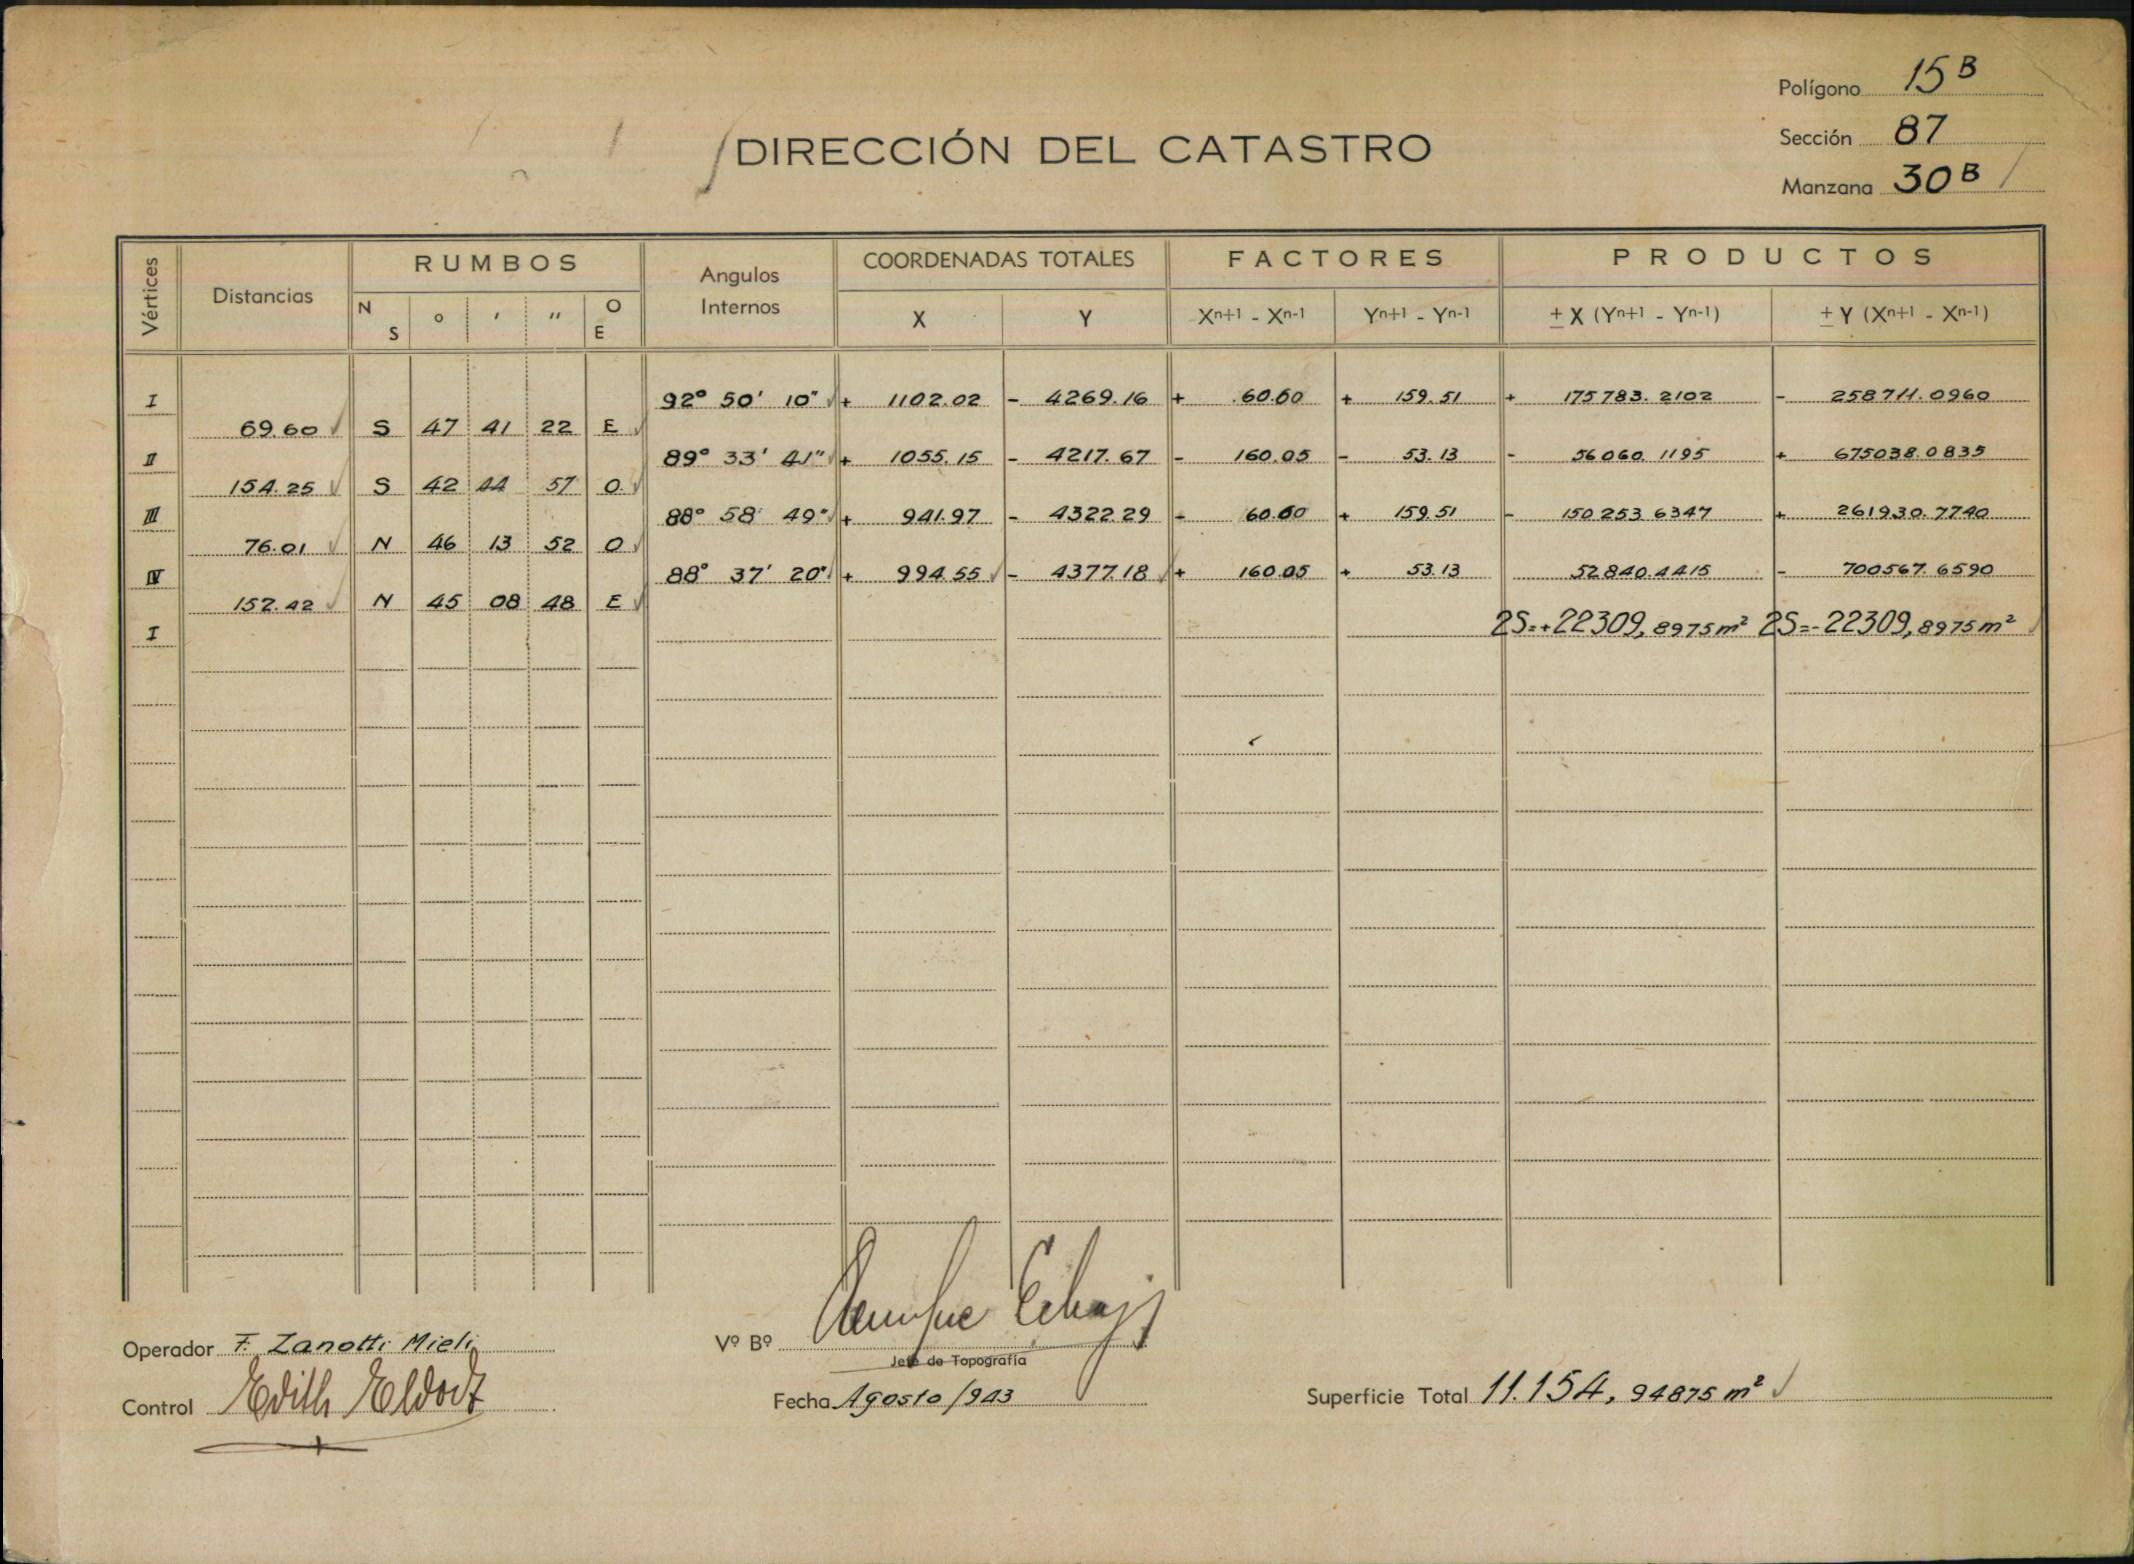 Polígono 15 B
DIRECCIÓN DEL CATASTRO
Sección 87
Manzana 30 B
Vértices Distancias RUMBOS Angulos Internos COORDENADAS TOTALES FACTORES PRODUCTOS
N S o ' '' O E X Y Xn+1 - Xn-1 Yn+1 - Yn-1 ± X (Yn+1 - Yn-1) ± Y (Xn+1 - Xn-1)
I 92° 50' 10" + 1102.02 - 4269.16 + 60.60 + 159.51 + 175783.2102 - 258711.0960
69.60 S 47 41 22 E
II 89° 33' 41" + 1055.15 - 4217.67 - 160.05 - 53.13 - 56060.1195 + 675038.0835
154.25 S 42 44 57 O
III 88° 58' 49" + 941.97 - 4322.29 - 60.60 + 159.51 - 150253.6347 + 261930.7740
76.01 N 46 13 52 O
IV 88° 37' 20" + 994.55 - 4377.18 + 160.05 + 53.13 52840.4415 - 700567.6590
152.42 N 45 08 48 E
I 2S=+22309,8975 m² 2S=-22309,8975 m²
Operador F. Zanotti Mieli
Vº Bº
Jefe de Topografía
Control Edith
Fecha Agosto/943
Superficie Total 11.154,94875 m²